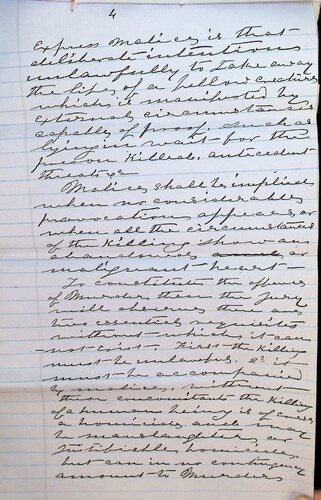 4
Express Malice is that
deliberate intention
unlawfully to take away
the life of a fellow creature
which is manifested by
external circumstances
capable of proof, such as
lying in wait for the
person killed, antecedent
threats &c
Malice shall be implied
when no considerable
provocation appears, or
when all the circumstances
of the killing show an
abandoned or
malignant heart—
To constitute the offence
of Murder then the Jury
will observe there are
two essential requisites
without which it can
not exist. First the killing
must be unlawful &
must be accompanied
by malice. Without
these concomitants the killing
of a human being is of course
a homicide and may
be manslaughter, or
justifiable homicide,
but can in no contingency
amount to Murder